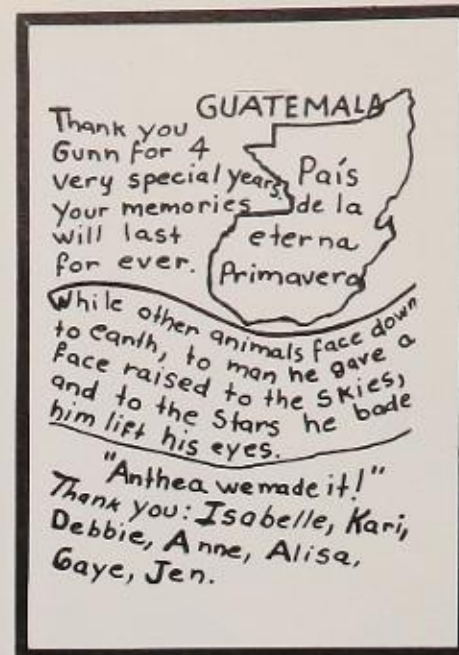 GUATEMALA
Thank you
Gunn for 4
very special years.
Your memories
will last
for ever.
País
de la
eterna
Primavera
While other animals face down
to earth, to man he gave a
face raised to the skies,
and to the stars he bade
him lift his eyes.
"Anthea we made it!"
Thank you: Isabelle, Kari,
Debbie, Anne, Alisa,
Gaye, Jen.